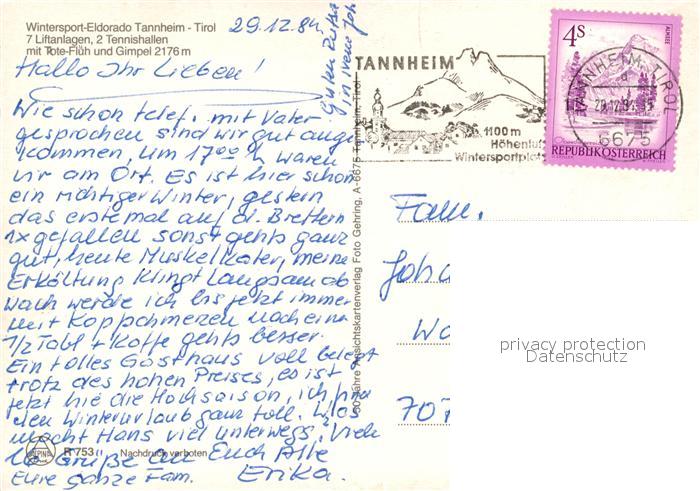 Wintersport-Eldorado Tannheim - Tirol
7 Liftanlagen, 2 Tennishallen
mit Rote-Flüh und Gimpel 2176 m
29.12.84.
Guten Rutsch
in neue Jah
Hallo Ihr Lieben!
Wie schon telef. mit Vater
gesprochen sind wir gut ange
kommen, Um 17.00 h waren
wir am Ort. Es ist hier schon
ein richtiger Winter, gestern
das erstemal auf d. Brettern
1x gefallen sonst gehts ganz
gut, heute Muskelkater, meine
Erkältung klingt langsam ab
wach werde ich bis jetzt immer
mit Kopschmerzen nach eine
1/2 Tabl + Kaffe gehts besser.
Ein tolles Gasthaus voll belegt
trotz des hohen Preises, es ist
jetzt hie die Hochsaison, ich
den Winterurlaub ganz toll. Was
macht Hans viel unterwegs? Viele
lb Grüße an Euch Alle
Eure ganze Fam. Erika.
ALPINA
R 753 Nachdruck verboten
Jahre Ansichtskartenverlag Foto Gehring, A-6675 Tannheim, Tirol
TANNHEIM
1100 m
Höhenluft
Wintersportplatz
4S
ALMSEE
REPUBLIK ÖSTERREICH
TANNHEIM, TIROL
6675
Fam.
Joha
Wa
70
privacy protection
Datenschutz